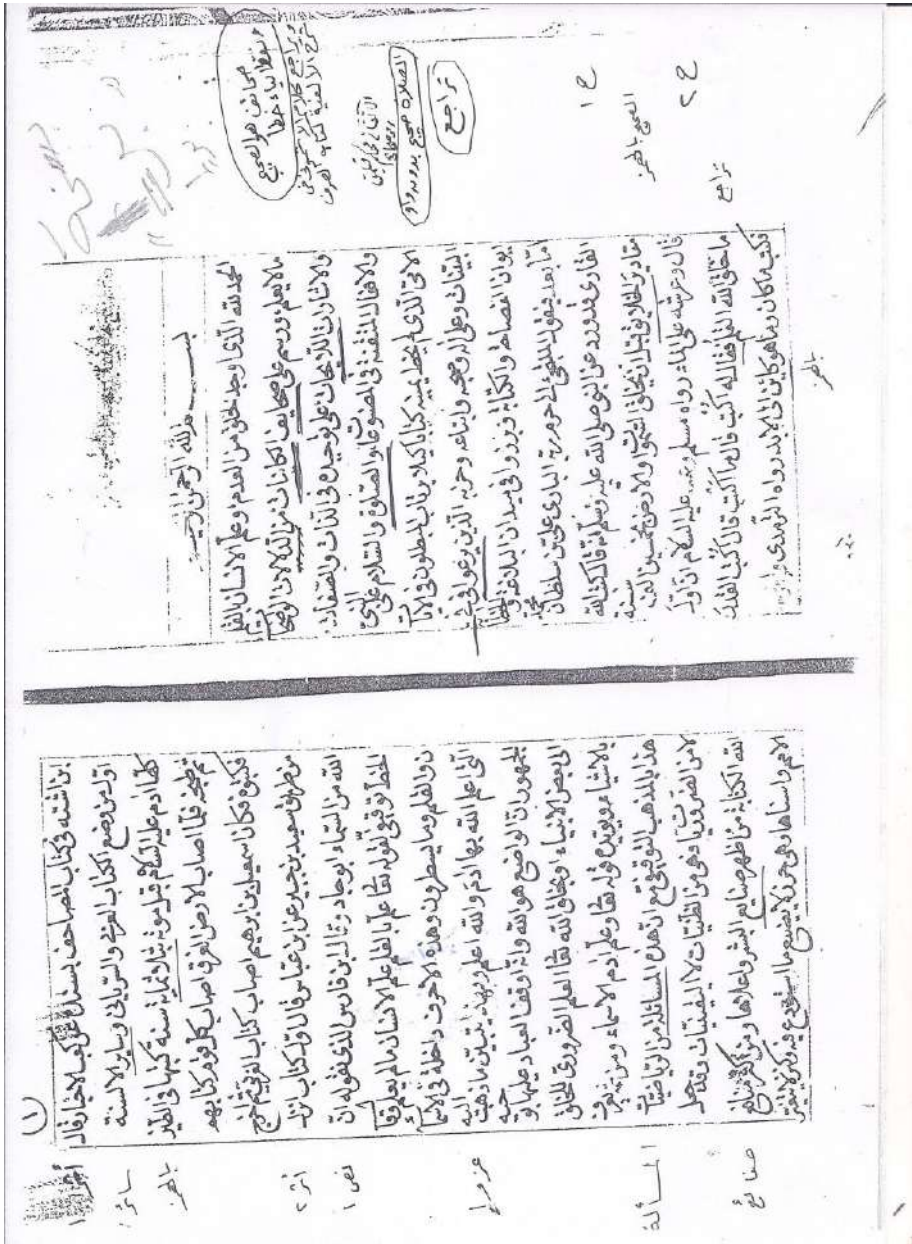 صحائف هو الصحيح
ونقط الياء خطأ
الصلاة صحيح بدون واو
تراجع
ح ١
الصحيح بالهمز
ح ٢
تراجع
بالهمز
بسم الله الرحمن الرحيم
الحمد لله الذي اوجد الخلق من العدم وعلم الانسان بالقلم
ما لا يعلم ورسم على صحايف الكائنات من الدلالات الواضحات
والاشارات اللائحات على توحيده في الذات والصفات
والافعال المتقنة في المصنوعات والصلوة والسلام على النبي
الامي الذي لم يخط بيمينه كتابا كيلا يرتاب المبطلون في الايات
البينات وعلى اله وصحبه واتباعه وحزبه الذين برعوا في
يوان الفصاحة والكتابة وبرزوا في ميدان البلاغة والخطابة
اما بعد فيقول الملتجئ الى حرم ربه الباري علي بن سلطان محمد
القاري قد ورد عن النبي صلى الله عليه وسلم انه قال كتب الله
مقادير الخلايق قبل ان يخلق السموات والارض بخمسين الف سنة
قال وعرشه على الماء رواه مسلم وعنه عليه السلام ان اول
ما خلق الله القلم فقال له اكتب قال ما اكتب قال اكتب القدر
فكتب ما كان وما هو كاين الى الابد رواه الترمذي واخرج
١
بن اشته في كتاب المصاحف بسنده عن كعب الاحبار قال
اول من وضع الكتاب العربي والسرياني وساير الالسنة
كلها ادم عليه السلام قبل موته بثلاثمائة سنة كتبها في الطين
ثم طبخه فلما اصاب الارض الغرق اصاب كل قوم كتابهم
فكتبوه فكان اسمعيل بن ابرهيم اصاب كتاب العربي ثم اخرج
من طريق سعيد بن جبير عن ابن عباس قال اول كتاب انزله
الله من السماء ابو جاد وقال ابن فارس الذي نقوله ان
الخط توقيفي لقوله تعالى علم بالقلم علم الانسان ما لم يعلم وقال
ن والقلم وما يسطرون وهذه الاحرف داخلة في الاسماء
التي علم الله بها ادم والله اعلم وبهذا يتبين ما ذهب اليه
الجمهور ان الواضع هو الله وانه اوقف العباد عليها بوحيه
الى بعض الانبياء او بخلق الله تعالى العلم الضروري للخلق
بالاشياء ويؤيده قوله تعالى وعلم ادم الاسماء ومن ثم يعرف
هذا بالمذهب التوقيفي مع ان هذه المسائلة من الرياضيات
لا من الضروريات وهي من الظنيات لا اليقينيات وقد جعل
الله الكتابة من اظهر صنايع البشر واعلاها ومن اكبر منافع
الامم واسناها وهي حرز لا يضيع ما استودع فيه وكنز لا يتغير
سائر
بالهمز
أثر ٢
نص ١
عزو
المسألة
صنائع